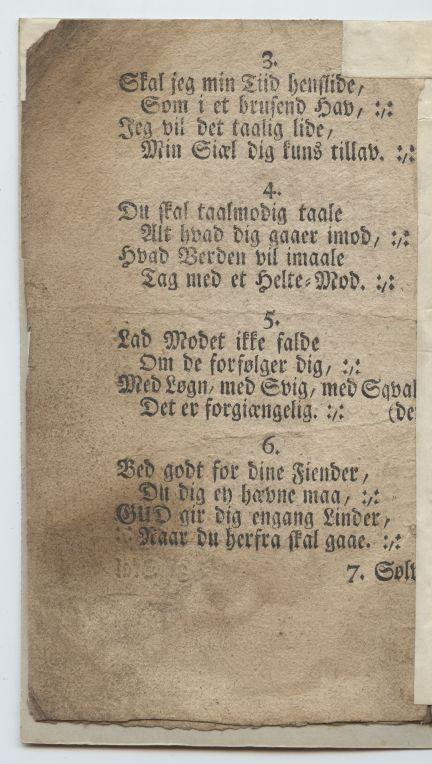 3.
Skal jeg min Tiid henslide,
Som i et brusend Hav, :,:
Jeg vil det taalig lide,
Min Siæl dig kuns tillav. :,:
4.
Du skal taalmodig taale
Alt hvad dig gaaer imod, :,:
Hvad Verden vil imaale
Tag med et Helte-Mod. :,:
5.
Lad Modet ikke falde
Om de forfølger dig, :,:
Med Løgn, med Svig, med Sqval
Det er forgiængelig. :,: (de
6.
Bed godt for dine Fiender,
Du dig ey hævne maa, :,:
GUD gir dig engang Linder,
Naar du herfra skal gaae. :,:
7. Solv